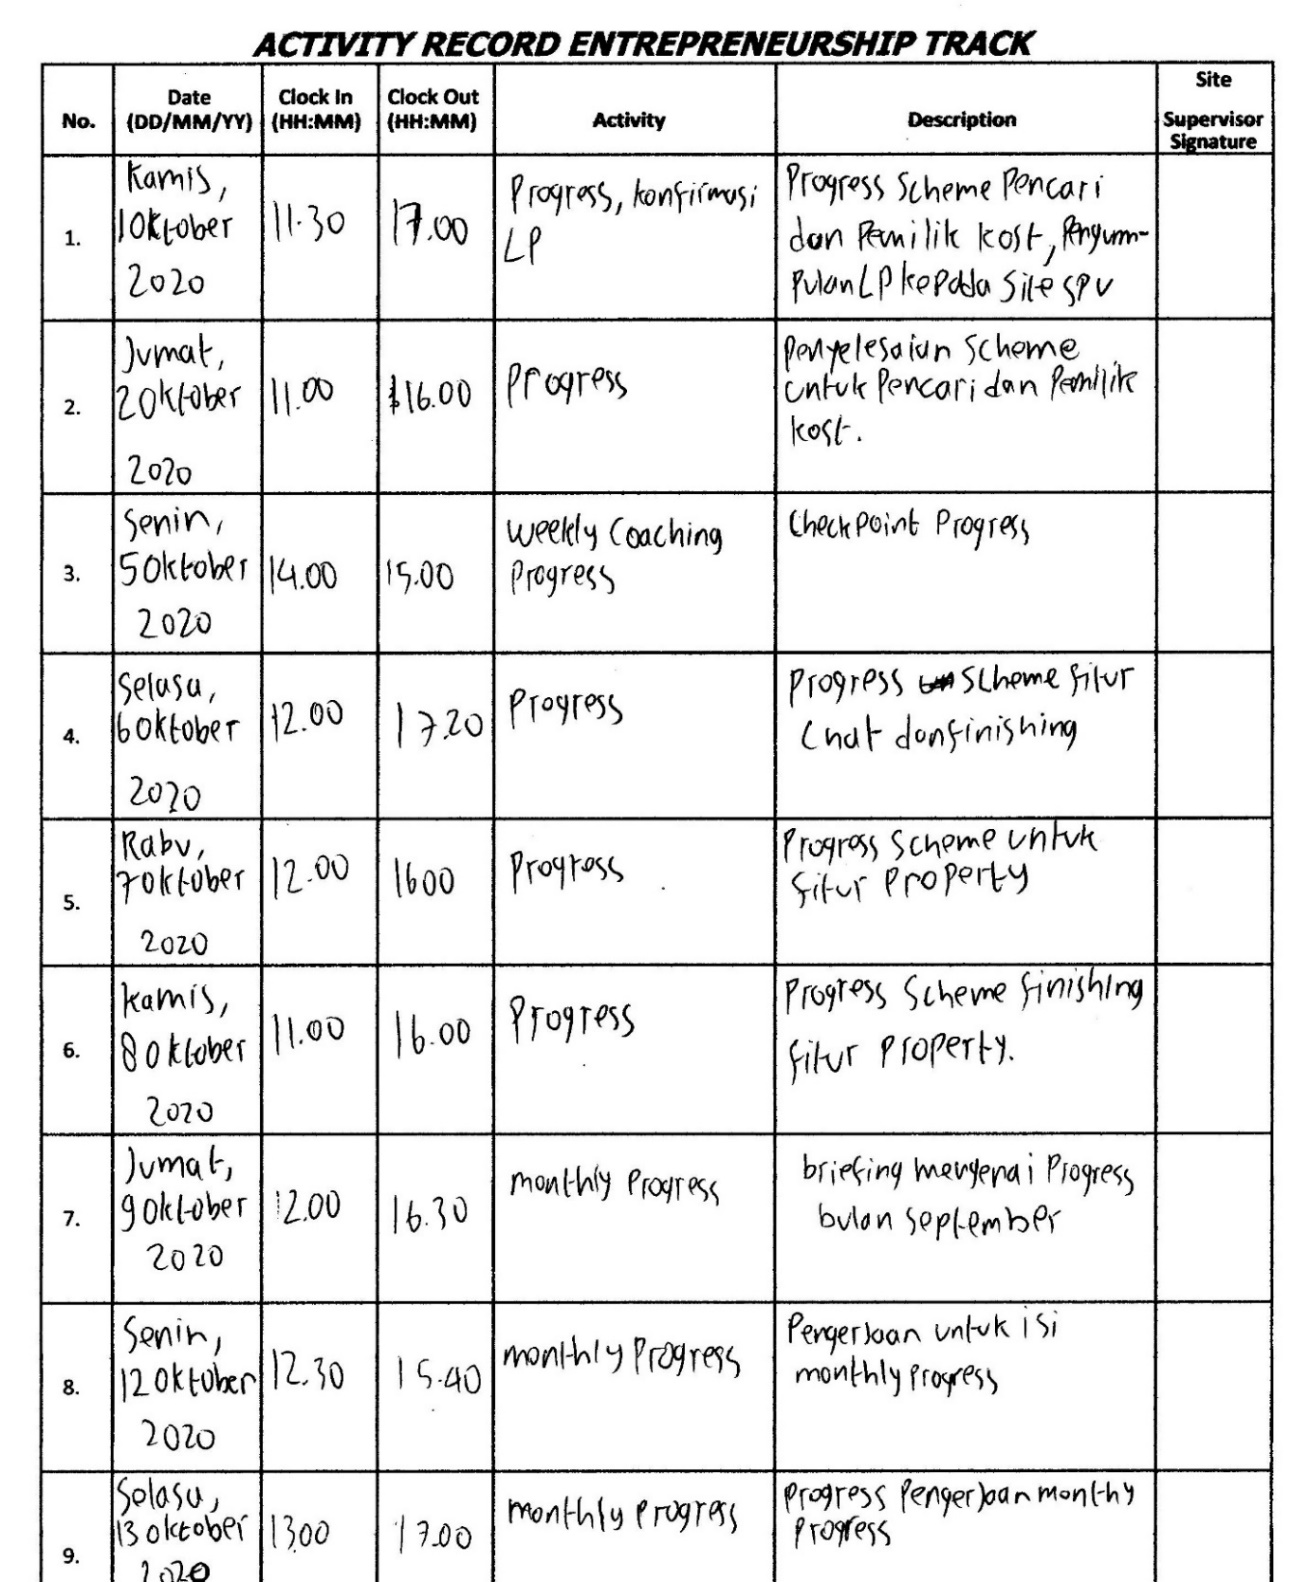 ACTIVITY RECORD ENTREPRENEURSHIP TRACK
No.
Date
(DD/MM/YY)
Clock In
(HH:MM)
Clock Out
(HH:MM)
Activity
Description
Site
Supervisor
Signature
1.
Kamis,
1 Oktober
2020
11.30
17.00
Progress, konfirmasi
LP
Progress Scheme Pencari
dan Pemilik kost, Pengum-
pulan LP kepada Site spv
2.
Jumat,
2 Oktober
2020
11.00
16.00
Progress
Penyelesaian Scheme
untuk Pencari dan Pemilik
kost.
3.
Senin,
5 Oktober
2020
14.00
15.00
weekly Coaching
Progress
Checkpoint Progress
4.
Selasa,
6 Oktober
2020
12.00
17.20
Progress
Progress Scheme fitur
Chat dan finishing
5.
Rabu,
7 Oktober
2020
12.00
1600
Progress
Progress Scheme untuk
fitur Property
6.
kamis,
8 Oktober
2020
11.00
16.00
Progress
Progress Scheme finishing
fitur Property.
7.
Jumat,
9 Oktober
2020
12.00
16.30
monthly Progress
briefing mengenai Progress
bulan September
8.
Senin,
12 Oktober
2020
12.30
15.40
monthly Progress
Pengerjaan untuk isi
monthly Progress
9.
Selasa,
13 Oktober
2020
1300
17.00
monthly Progress
Progress Pengerjaan monthy
Progress